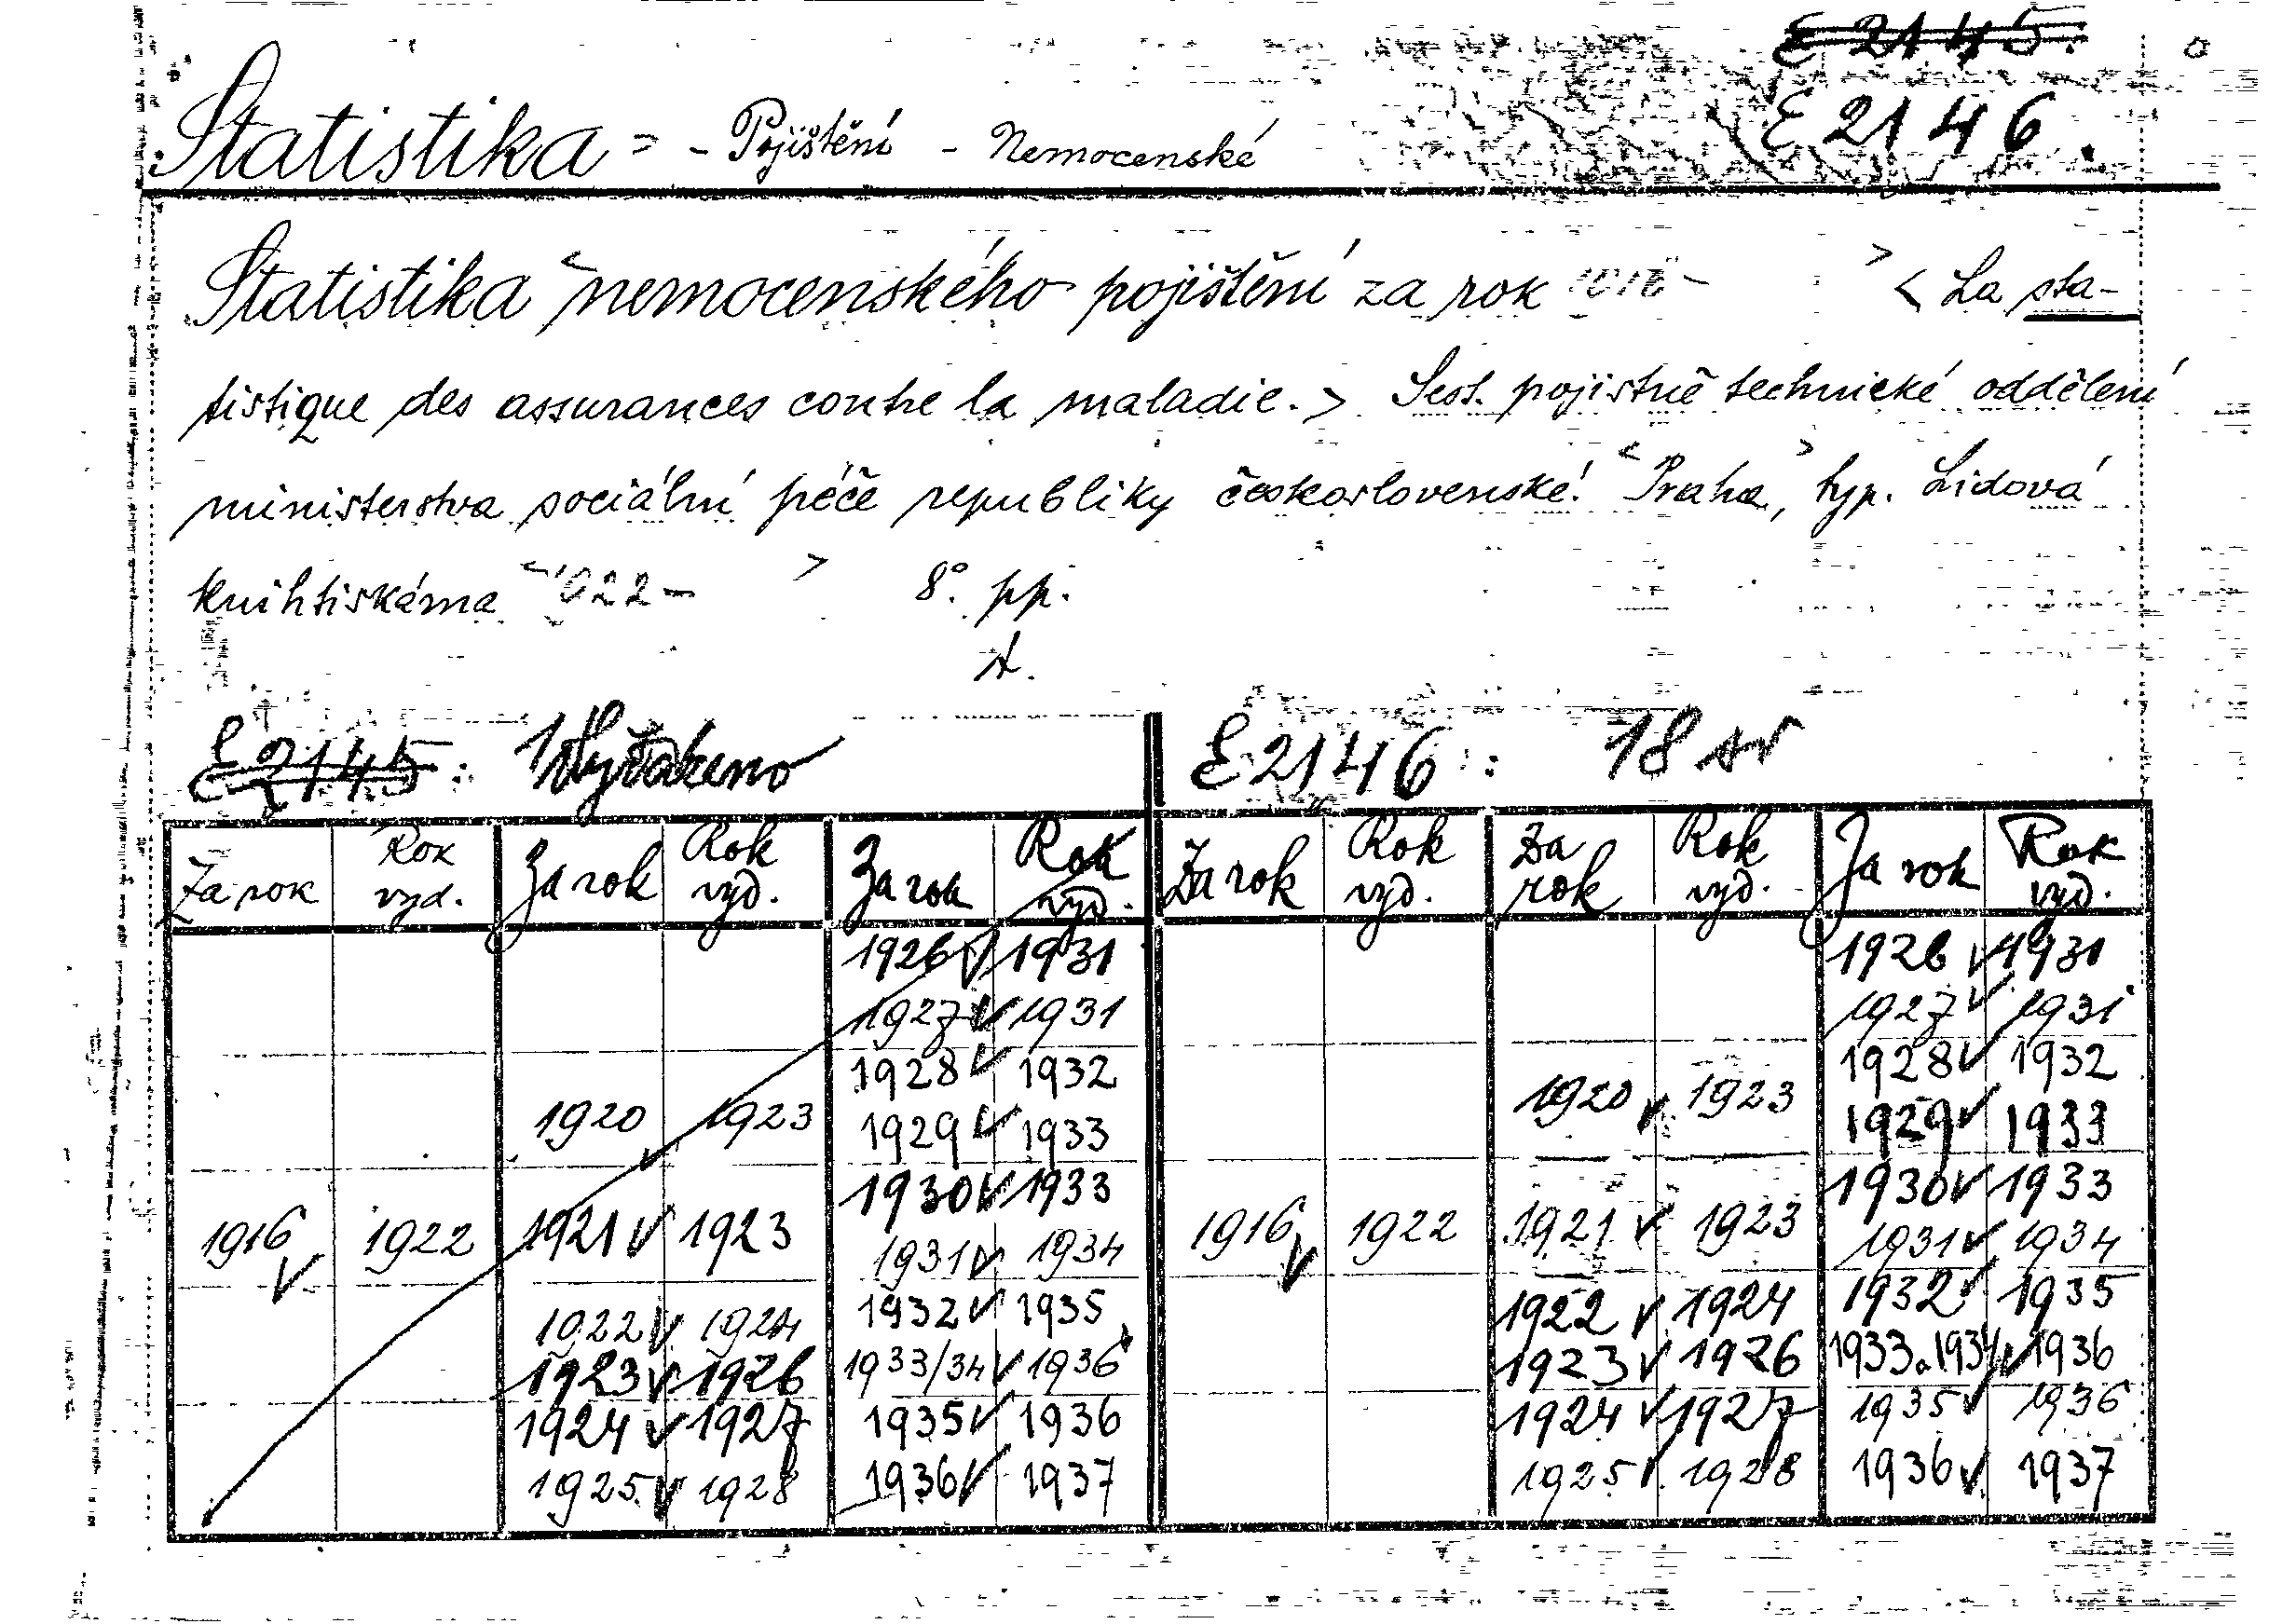 E 2145.
Statistika = - Pojištění - Nemocenské E 2146.
Statistika <nemocenského pojištění za rok 1916- > < La sta-
tistique des assurances contre la maladie. > Sest. pojistně technické oddělení
ministerstva sociální péče republiky československé. <Praha>, typ. Lidová
knihtiskárna <1922- > 8°. pp.
E 2145: Vyřazeno E 2146: 18 sv
Za rok Rok vyd. Za rok Rok vyd. Za rok Rok vyd. Za rok Rok vyd. Za rok Rok vyd. Za rok Rok vyd.
1926 ✓ 1931 1926 ✓ 1931
1927 ✓ 1931 1927 ✓ 1931
1928 ✓ 1932 1928 ✓ 1932
1920 ✓ 1923 1929 ✓ 1933 1920 ✓ 1923 1929 ✓ 1933
1930 ✓ 1933 1930 ✓ 1933
1916 ✓ 1922 1921 ✓ 1923 1931 ✓ 1934 1916 ✓ 1922 1921 ✓ 1923 1931 ✓ 1934
1922 ✓ 1924 1932 ✓ 1935 1922 ✓ 1924 1932 ✓ 1935
1923 ✓ 1926 1933/34 ✓ 1936 1923 ✓ 1926 1933a1934 ✓ 1936
1924 ✓ 1927 1935 ✓ 1936 1924 ✓ 1927 1935 ✓ 1936
1925 ✓ 1928 1936 ✓ 1937 1925 ✓ 1928 1936 ✓ 1937